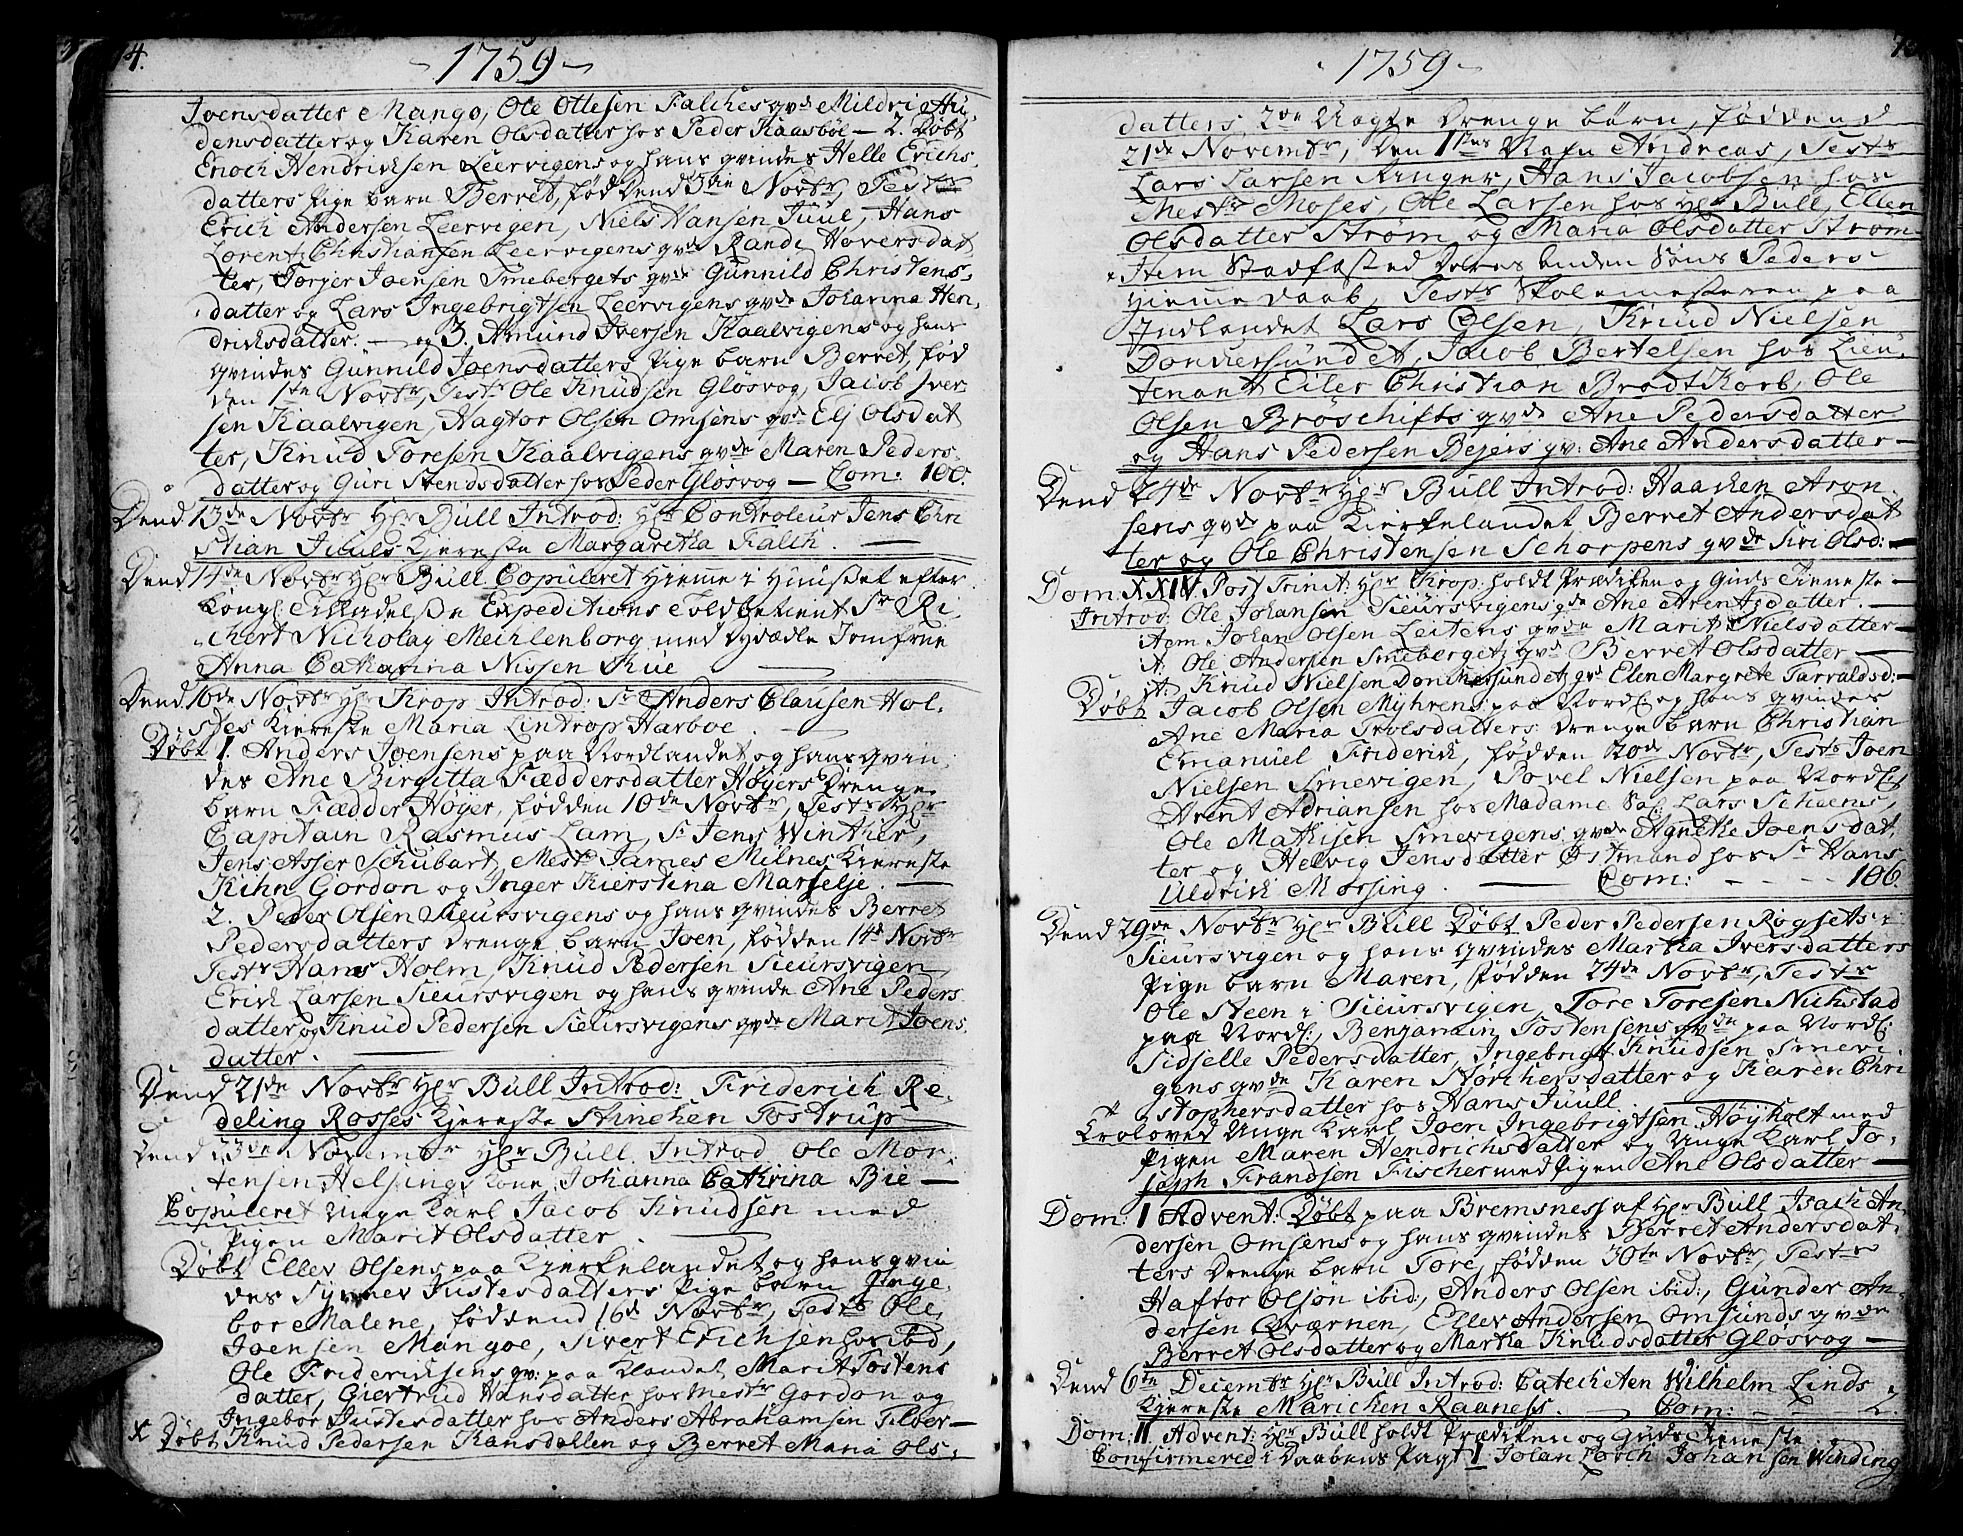 4.
- 1759 -
Joensdatter Mango, Ole Ottesen Falches qvde Mildri Au¸
densdatter og Karen Olsdatter hos Peder Kaasbøe — 2. Døbt
Enoch Hendrichsen Leervigens og hans qvindes Helle Erichs¸
datters Pige barn Berret, fød dend 3die Novbr, Testr
Erich Andersen Leervigen, Niels Hansen Juul, Hans
Lorentz Christiansen Leervigens qvde Randi Hoversdat
ter, Torger Joensen Smebergets qvde Gunnild Christens¸
datter og Lars Ingebrigtsen Leervigens qvde Johanna Hen¸
drichsdatter. — og 3. Amund Iversen Kaalvigens og hans
qvindes Gunnild Joensdatters Pige barn Berret, fød
den 1ste Novbr, Testr Ole Knudsen Gløsvog, Jacob Iver
sen Kaalvigen, Hagtor Olsen Omsens qvde Elj Olsdat
ter, Knud Toresen Kaalvigens qvde Maren Peders¸
datter og Guri Stendsdatter hos Peder Gløsvog — Com: 100.
Dend 13de Novbr Hr Bull Introd: Hr Controleur Jens Chri
stian Juuls Kiereste Margaretha Falch. —
Dend 14de Novbr Hr Bull Copuleret hieme i Huuset efter
Kongl: Tilladelße Expeditions Toldbetient Sr Ri¸
chert Nicholay Mechlenborg med dydædle Jomfrue
Anna Catharina Nissen Rue —
Dend 16de Novbr Hr Krop Introd: Sr Anders Clausen Hol¸
stes Kiereste Maria Lintrop Harboe. —
Døbt 1. Anders Joensens paa Nordlandet og hans qvin¸
des Ane Birgitta Fæddersdatter Høyers Drenge
barn Fædder Høyer, født den 10de Novbr, Testr Hr
Capitain Rasmus Lam, Sr Jens Winther,
Jens Asser Schubart, Mestr James Milnes Kiereste
Kihn Gordon og Inger Kierstina Marselje. —
2. Peder Olsen Sieursvigens og hans qvindes Berret
Pedersdatters Drenge barn Joen, født den 14d Novbr
Testr Hans Holm, Knud Pedersen Sieursvigen,
Erich Larsen Sieursvigen og hans qvinde Ane Peders
datter og Knud Pedersen Sieursvigens qvde Marit Joens¸
datter. —
Dend 21de Novbr Hr Bull Introd: Friderich Re¸
deling Rosses Kiereste Stinchen Tostrup —
Dend 23de Novembr Hr Bull Introd Ole Mor¸
tensen Helsings kone Johanna Cathrina Bie —
Copuleret Unge Karl Jacob Knudsen med
Pigen Marit Olsdatter. —
Døbt Ellev Olsens paa Kierkelandet og hans qvin
des Synnev Justesdatters Pige barn Inge¸
bor Malene, født dend 16d Novbr, Testr Ole
Joensen Mangoe, Sivert Erichsen hos ibd,
Ole Friderichsens qv: paa Klandet Marit Tostens
datter, Giertrud Hansdatter hos Mestr Gordon og
Ingebor Justesdatter hos Anders Abrahamsen Tilver —
x Døbt Knud Pedersen Kansdallen og Berret Maria Ols¸
· 1759 -
datters 2de Uægte Drenge børn, fødde dend
21de Novembr, den 1stes Nafn Andreas, Testr
Lars Larsen Ringer, Hans Jacobsen hos
Mestr Moses, Ole Larsen hos Hr Bull, Ellen
Olsdatter Strøm og Maria Olsdatter Strøm
Item Stadfæsted deres anden Søns Peders
Hiemme daab, Testr Skolemesteren paa
Indlandet Lars Olsen, Knud Nielsen
Donchersundet, Jacob Bertelsen hos Lieu¸
tenant Eiler Christian BrodtKorb, Ole
Olsen Brøschifts qvde Ane Pedersdatter
og Hans Pedersen Bejers qv: Ane Andersdatter —
Dend 24de Novbr Hr Bull Introd: Haachen Aron¸
sens qvde paa Kierkelandet Berret Andersdat
ter og Ole Christensen Schorpens qvde Siri Olsd: —
Dom: XXIV. Post Trinit: Hr Krop holdt Prædiken og Guds Tieneste —
Introd: Ole Johansen Sieursvigens qde Ane Arentzdatter. —
Item Johan Olsen Leitens qvde Marit Nielsdatter —
it: Ole Andersen Smebergetz qvd Berret Olsdatter —
it: Knud Nielsen Donchersundetz qvd Elen Margrete Tarraldsd: —
Døbt Jacob Olsen Myhrens paa Nordl: og hans qvindes
Ane Maria Trolsdatters Drenge barn Christian
Emanuel Friderich, født den 20de Novbr, Testr Joen
Nielsen Smevigen, Povel Nielsen paa Nordl:
Arent Adriansen hos Madame Sal: Lars Scheens,
Ole Mathisen Smevigens qvde Agnethe Joensdat¸
ter og Helvig Jensdatter Østmand hos Sr Hans
Uldrich Mørsing. — Com: - - - - 106.
Dend 29de Novbr Hr Bull Døbt Peder Pedersen Røgsets i
Sieursvigen og hans qvindes Martha Iversdatters
Pige barn Maren, født den 24de Novbr, Testr
Ole Steen i Sieursvigen, Tore Toresen Nichstad
paa Nordl:, Benjamin Tostensens qvde paa Nordl:
Sidselle Pedersdatter, Ingebrigt Knudsen Smevi
gens qvde Karen Nørchersdatter og Karen Chri
stophersdatter hos Hans Juull. —
Troloved Unge Karl Joen Ingebrigtsen Høyholt med
Pigen Maren Hendrichsdatter og Unge Karl Jo¸
seph Frandsen Fischer med Pigen Ane Olsdatter —
Dom: I Advent: Døbt paa Bremsness af Hr Bull Isach An¸
dersen Omsens og hans qvindes Berret Andersdat¸
ters Drenge barn Tore, født den 30te Novbr, Testr
Haftor Olsøn ibid:, Anders Olsen ibid:, Gunder An¸
dersen Qværnen, Ellev Andersen Omsunds qvde
Berret Olsdatter og Martha Knudsdatter Gløsvog —
Dend 6te Decembr Hr Bull Introd: Catecheten Wilhelm Linds
Kiereste Marichen Raaness. — Com: - - - 2.
Dom: II. Advent: Hr Bull holdt Prædiken og Guds Tieneste
Confirmered i Daabens Pagt 1. Johan Koch Johansen Winding